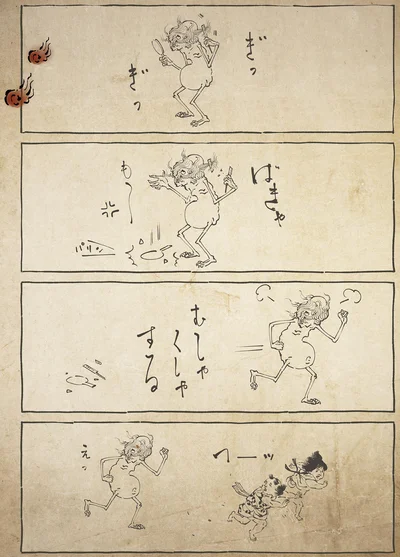 ぎっ
ぎっ
ばきゃ
も〜
パリン
むしゃ
くしゃ
する
えッ